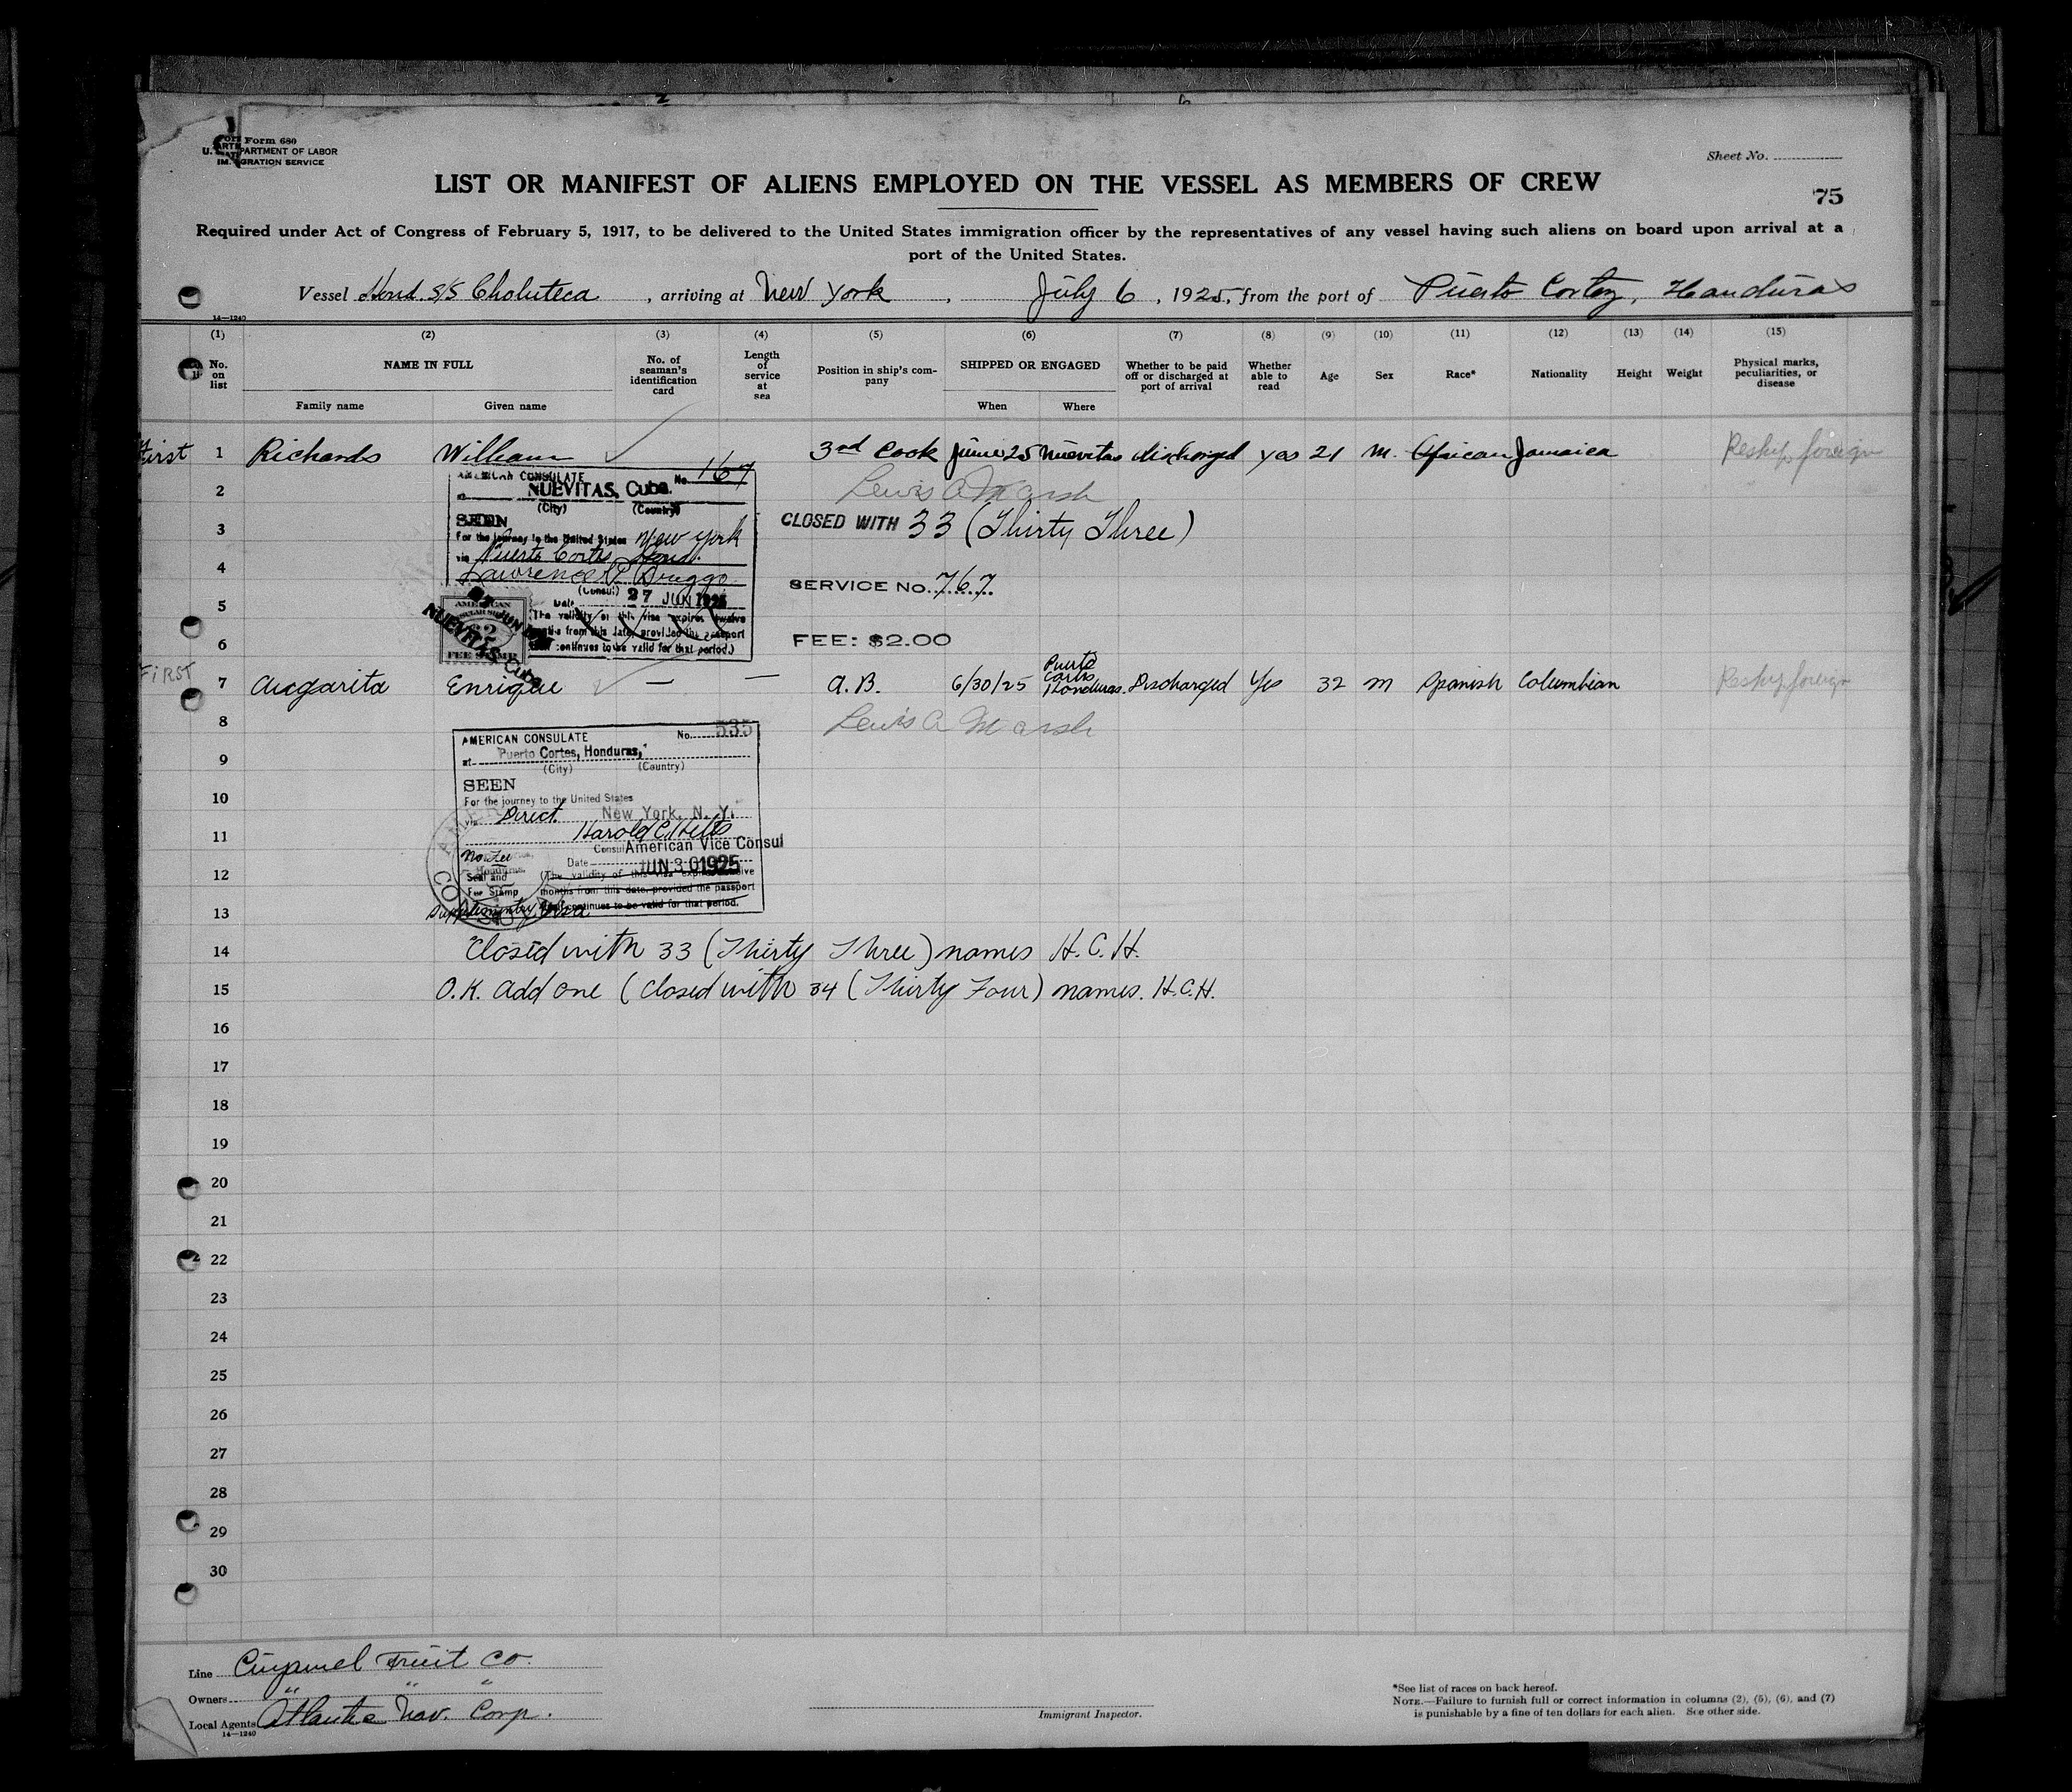 Form 680
U. DEPARTMENT OF LABOR
IMMIGRATION SERVICE
Sheet No.
LIST OR MANIFEST OF ALIENS EMPLOYED ON THE VESSEL AS MEMBERS OF CREW
75
Required under Act of Congress of February 5, 1917, to be delivered to the United States immigration officer by the representatives of any vessel having such aliens on board upon arrival at a
port of the United States.
Vessel Hond. S/S Choluteca, arriving at New York, July 6, 1925, from the port of Puerto Cortez, Honduras
14—1240
(1) (2) (3) (4) (5) (6) (7) (8) (9) (10) (11) (12) (13) (14) (15)
No. on list NAME IN FULL No. of seaman's identification card Length of service at sea Position in ship's company SHIPPED OR ENGAGED Whether to be paid off or discharged at port of arrival Whether able to read Age Sex Race* Nationality Height Weight Physical marks, peculiarities, or disease
Family name Given name When Where
First 1 Richards William 3rd Cook June 25 Nuevitas discharged yes 21 M. African Jamaica Reship foreign
AMERICAN CONSULATE No. 167
2 at NUEVITAS, Cuba. Lewis A Marsh
(City) (Country)
3 SEEN CLOSED WITH 33 (Thirty Three)
For the journey to the United States New York
via Puerto Cortes, Hond.
4 Lawrence P. Briggs SERVICE No. 767
(Consul) 27 JUN 1925
5 Date
AMERICAN CONSULAR SERVICE FEE STAMP
NUEVITAS, Cuba
(The validity of this visa expires twelve
months from this date, provided the passport
continues to be valid for that period.)
6 FEE: $2.00
FIRST 7 Augarita Enrique — — A.B. 6/30/25 Puerto Cortes Honduras. Discharged Yes 32 M Spanish Columbian Reship foreign
8 Lewis A Marsh
AMERICAN CONSULATE No. 535
9 at Puerto Cortes, Honduras,
(City) (Country)
SEEN
10 For the journey to the United States
via Direct. New York, N. Y.
11 Harold C. Hills
Consul American Vice Consul
No Fee Date JUN 30 1925
12 Seal and (The validity of this visa expires twelve
Fee Stamp months from this date, provided the passport
13 Supplementary Visa continues to be valid for that period.
14 Closed with 33 (Thirty Three) names H. C. H.
15 O.K. Add one (Closed with 34 (Thirty Four) names. H.C.H.
16
17
18
19
20
21
22
23
24
25
26
27
28
29
30
Line Cuyamel Fruit Co.
Owners " " "
Local Agents Atlantic Nav. Corp.
14—1240
Immigrant Inspector.
*See list of races on back hereof.
NOTE.—Failure to furnish full or correct information in columns (2), (5), (6), and (7)
is punishable by a fine of ten dollars for each alien. See other side.